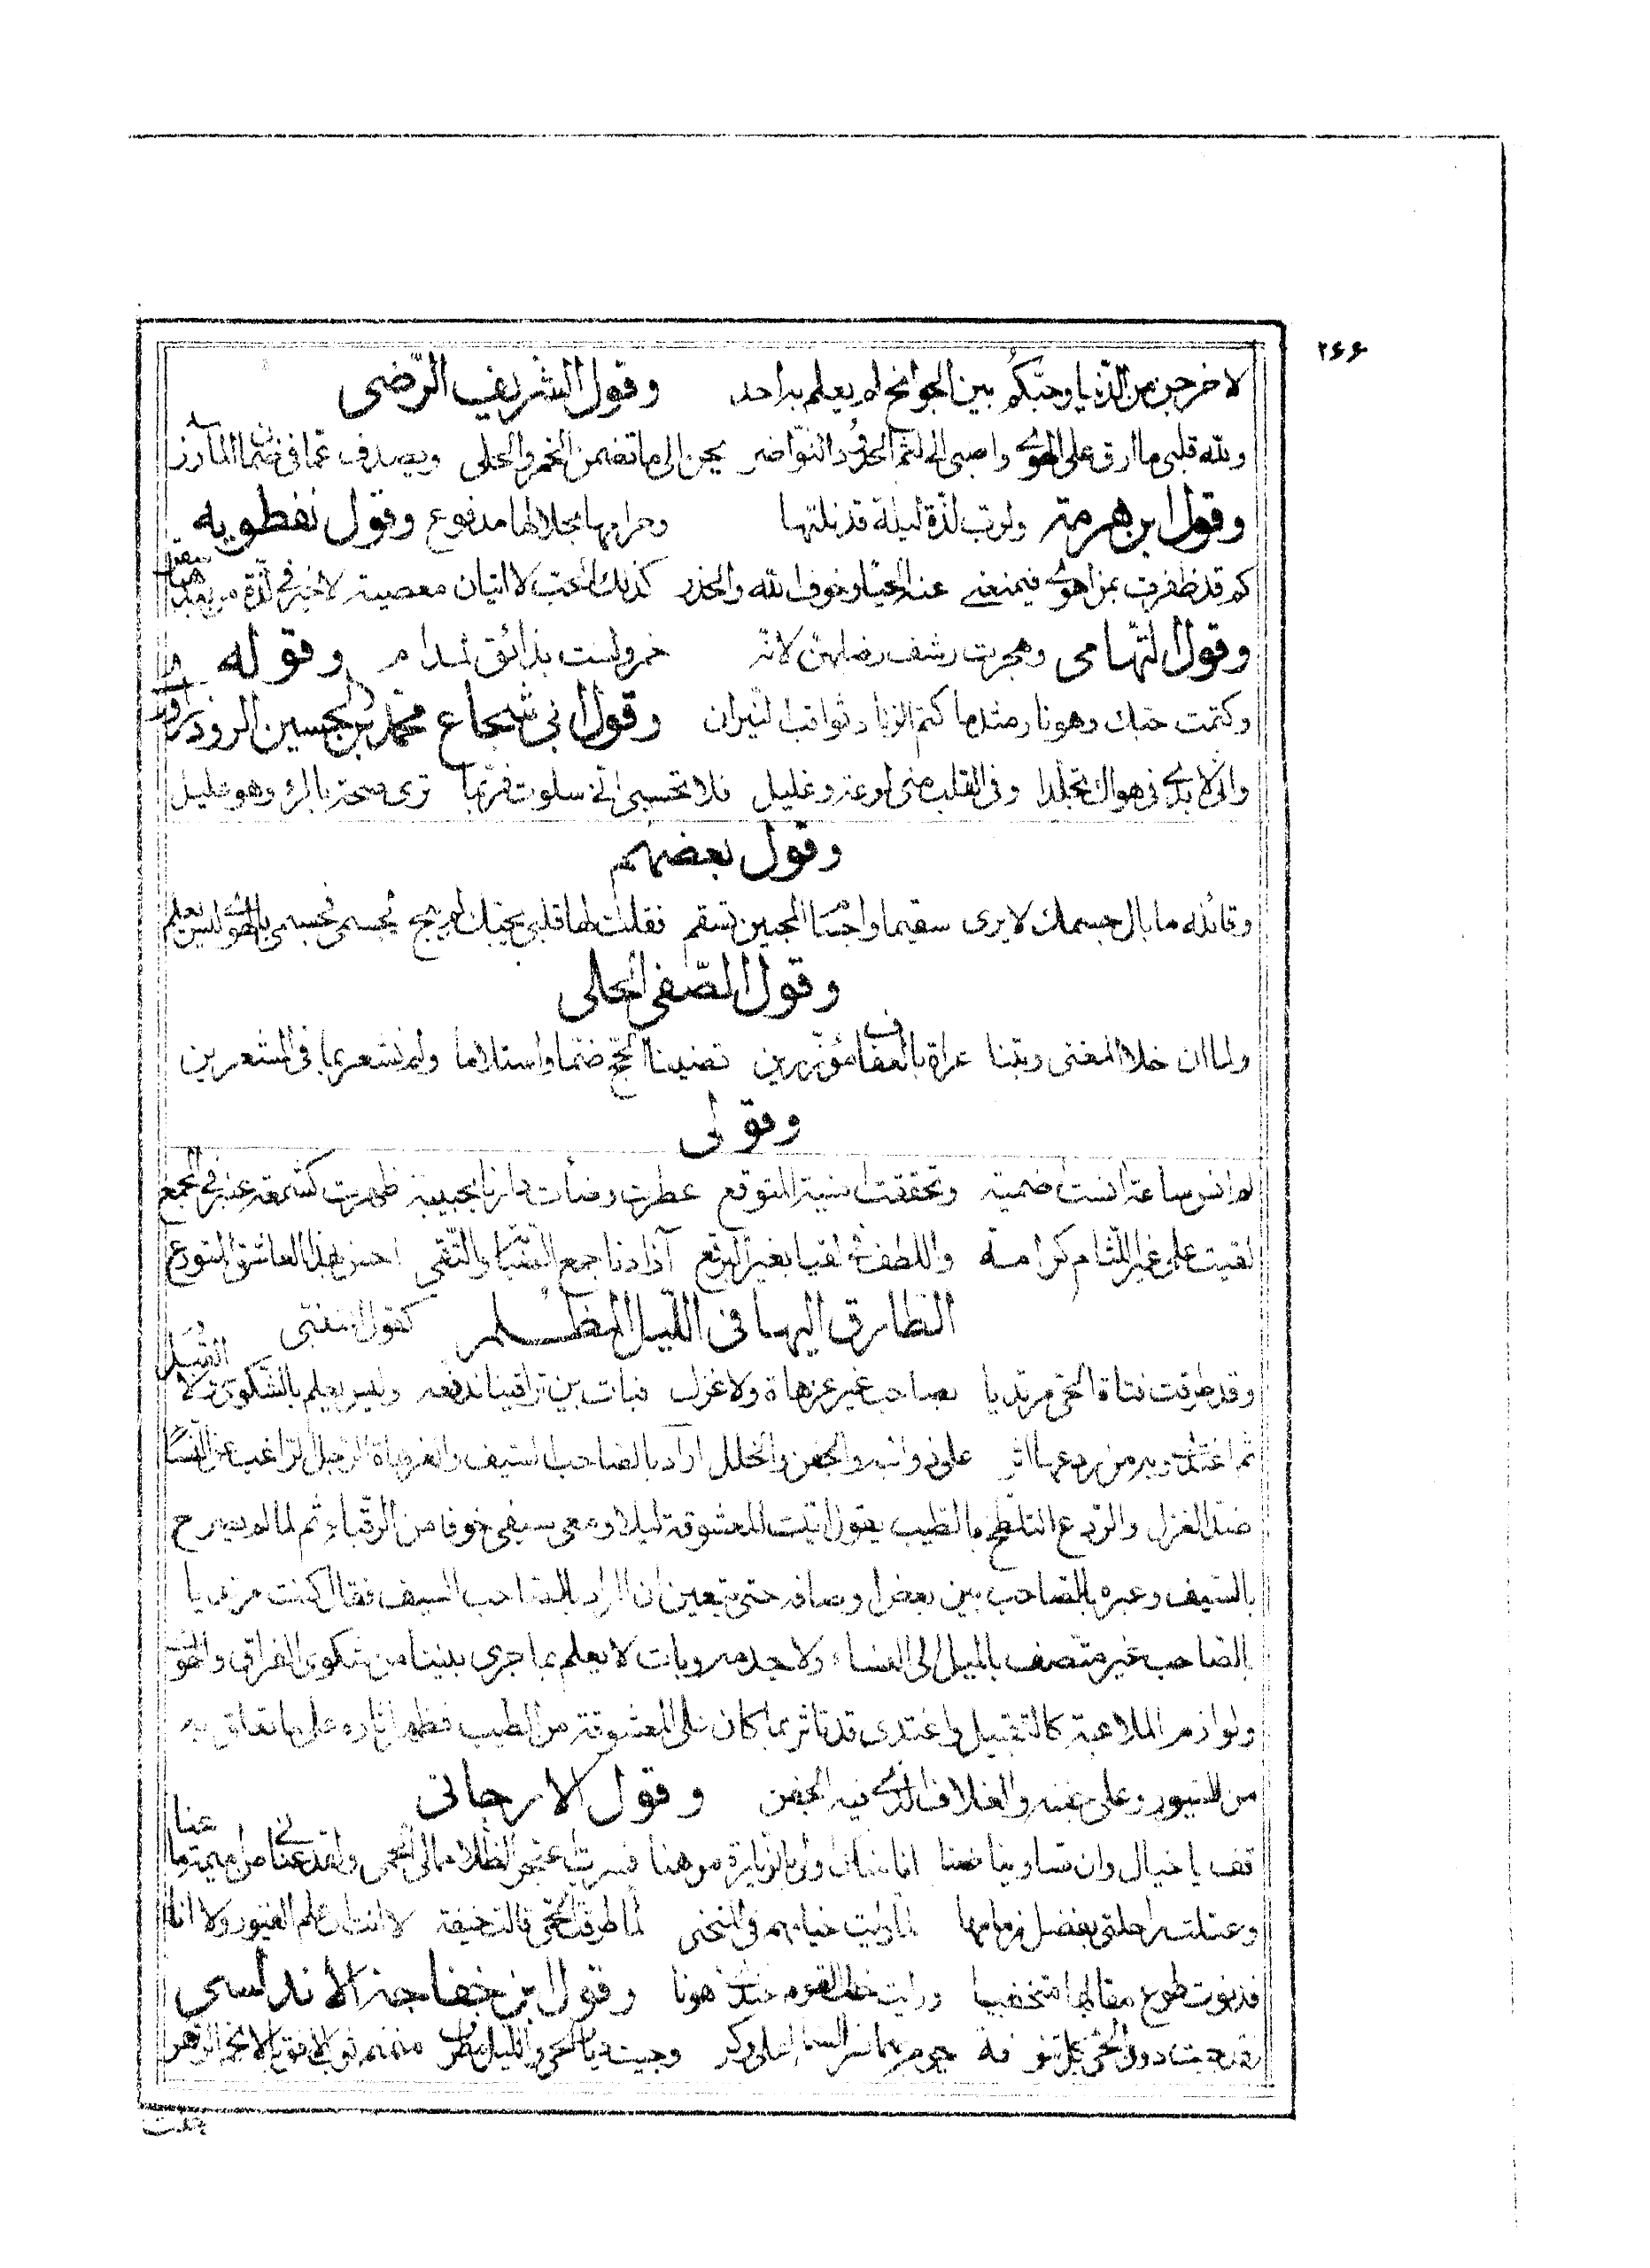 ٢٦٦
لاخرجن من الدنيا وحبكم بين الجوانح لم يعلم به احد وقول الشريف الرّضى
ولله قلبى ما ارق على الهوى واصبى الى لثم الخدود النواضر يحن الى ما تضمن الخمر والحلى ويصدف عما فى ضمان المآزر
وقول ابن هرمة ولرب لذة ليلة قد نلتها وحرامها بحلالها مدفوع وقول نفطويه
كم قد ظفرت بمن اهوى فيمنعنى عنه الحياء وخوف الله والحذر كذلك الحب لا اتيان معصية لا خير فى لذة من بعدها سقر
وقول التهامى وهجرت رشف رضابهن لانه خمر ولست بذائق لمدام وقوله
وكتمت حبك وهو نار مثلما كتم الزناد ثواقب النيران وقول ابى شجاع محمد بن الحسين الروذراورى
وانى لابدى فى هواك تجلدا وفى القلب منى لوعة وغليل فلا تحسبى انى سلوت فربما ترى صحة بالمرء وهو عليل
وقول بعضهم
وقائلة ما بال جسمك لا يرى سقيما واجسام المحبين تسقم فقلت لها قلبى بحبك لم يبح لجسمى فجسمى بالهوى ليس يعلم
وقول الصّفى الحلى
ولما ان خلا المغنى وبتنا عراة بالعفاف مؤزرين قضينا الحج ضما واستلاما ولم نشعر بما فى المشعرين
وقولى
لم انس ساعة انست وتحققت امنية المتوقع عطرت جاءت الحبيبة ظهرت كشمعة عنبر فى المجمع
لقيت على غير اللثام كرامة واللطف فى لقيا بغير البرقع آذادنا جمع الصبا والتقى احسن بهذا العاشق المتورع
الطارق اليها فى الليل المظلم كقول المتنبى
وقد طرقت فتاة الحى مرتديا بصاحب غير عزهاة ولا غزل فبات بين تراقينا ندفعه وليس يعلم بالشكوى ولا القبل
ثم اغتدى وبه من ردعها اثر على ذوابته والجفن والخلل اراد بالصاحب السيف والعزهاة الرجل الراغب عن النساء
ضد الغزل والردع التلطخ بالطيب يقول اتيت المعشوقة ليلا ومعى سيفى خوفا من الرقباء ثم لما لم يصرح
بالسيف وعبره بالصاحب بين بعض اوصافه حتى يتعين ان المراد بالصاحب السيف فقال كنت مرتديا
بالصاحب غير متصف بالميل الى النساء ولاجد وبات لا يعلم بما جرى بيننا من شكوى الفراق والهوى
ولوازم الملاعبة كالتقبيل واغتدى قد تاثر بما كان على المعشوقة من الطيب فظهر اثاره على ما تعلق به
من السيور وعلى جفنه والغلاف الذى فيه الجفن وقول الارجانى
قف يا خيال وان تساوينا ضنا انا منك اولى بالزيارة موهنا فسريت الظلام الى الحمى ولقد عنانى من اميمة ما عنا
وعقلت راحلتى بفضل زمامها لما رايت خيامهم فى المنحنى لما طرقت الحى قالت خيفة لا انت ان علم الغيور ولا انا
فدنوت طوع مقالها متخفيا ورايت خطب القوم عندى هونا وقول ابن خفاجة الاندلسى
لقد جبت دون الحى كل تنوفة يحوم بها نسر السماء على وكر وجئت ديار الحى والليل مطرق منمنم ثوب الافق بالانجم الزهر